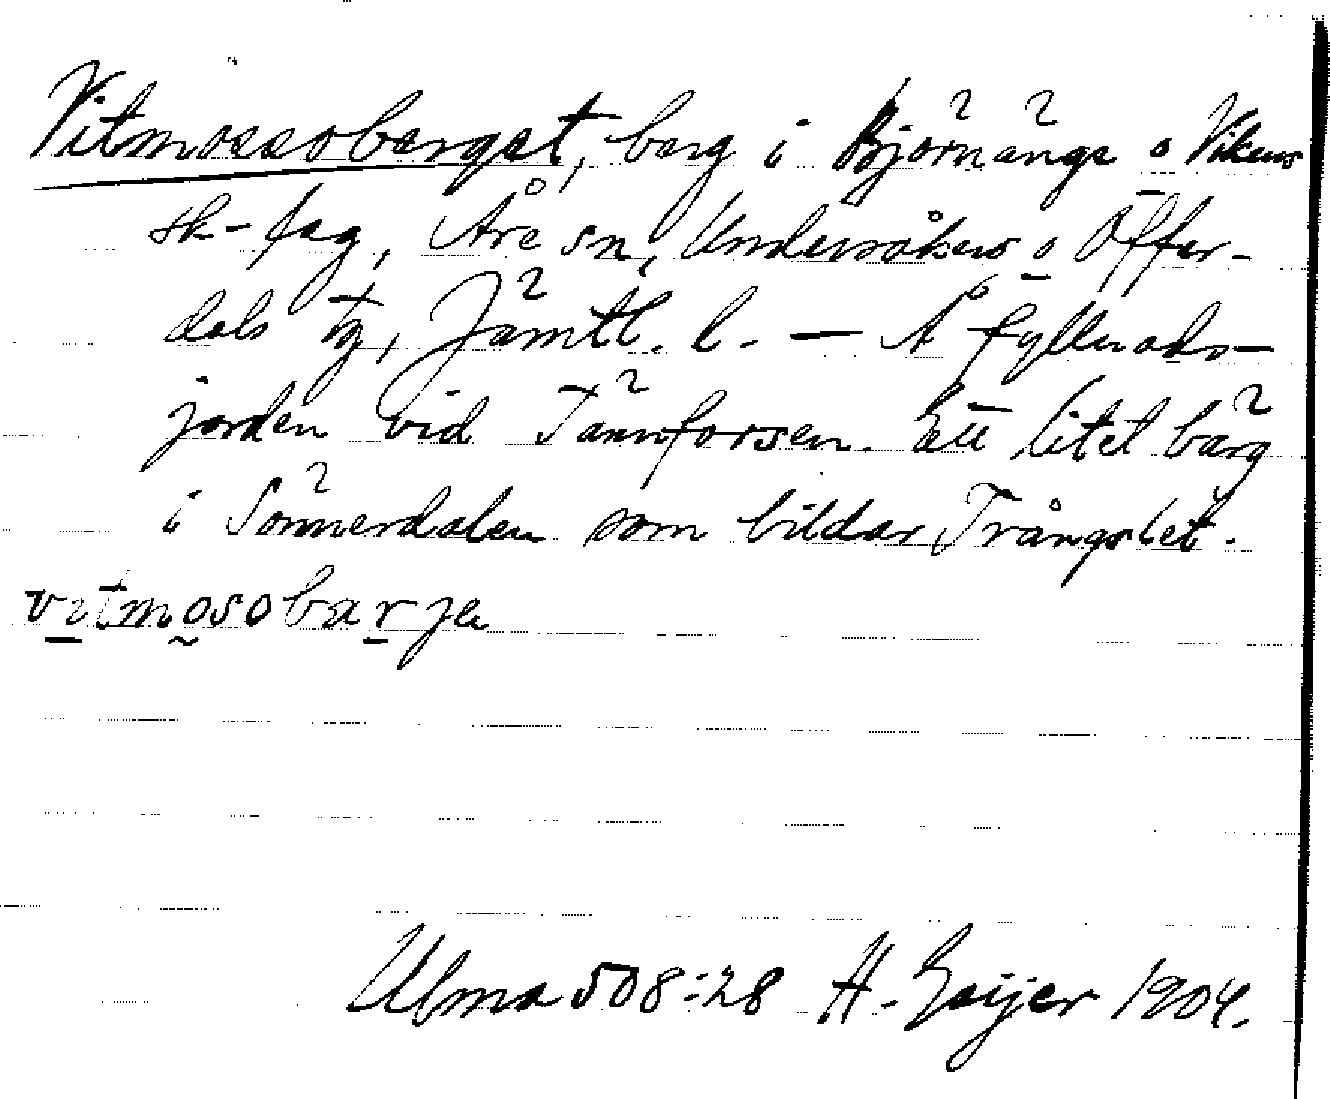 Vitmossoberget, berg i Björnänge o Vikens
sk-lag, Åre sn, Undersåkers o Offer-
dals tg, Jämtl. l. — Å fyllnads-
jorden vid Tännforsen. Ett litet bärg
i Sönnerdalen som bildar Trångslet.
vitmosobarje
Ulma 508:28 H. Geijer 1904.